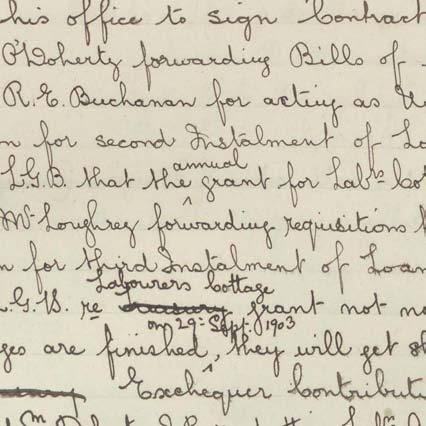 his office to sign Contract
O'Doherty forwarding Bills of
R. E. Buchanan for acting as
for second Instalment of
annual
L.G.B. that the ^ grant for Labrs. Cot
Mr. Loughrey forwarding requisitions
for third Instalment of Loan
Labourers Cottage
G. B. re grant not
on 29th Sept. 1903
are finished, ^ they will get
Exchequer Contributi